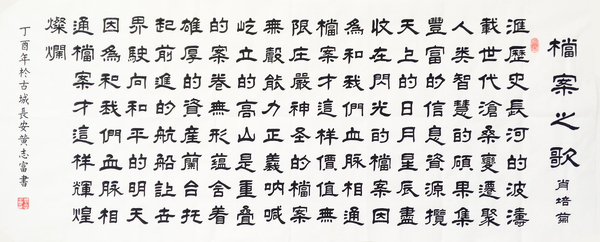 檔案之歌
肖培爾
滙歷史長河的波濤
載世代滄桑變遷聚
人類智慧的碩果集
豐富的信息資源攬
天上的日月星辰盡
收在閃光的檔案因
為和我們血脉相通
檔案才這樣價值無
限庄嚴神圣的檔案
無聲能力正義吶喊
屹立的高山是重疊
的案卷無形蘊含着
雄厚的資産蘭台托
起前進的航船讓世
界駛向和平的明天
因為和我們血脉相
通檔案才這樣輝煌
燦爛
丁酉年於古城長安黄志富書